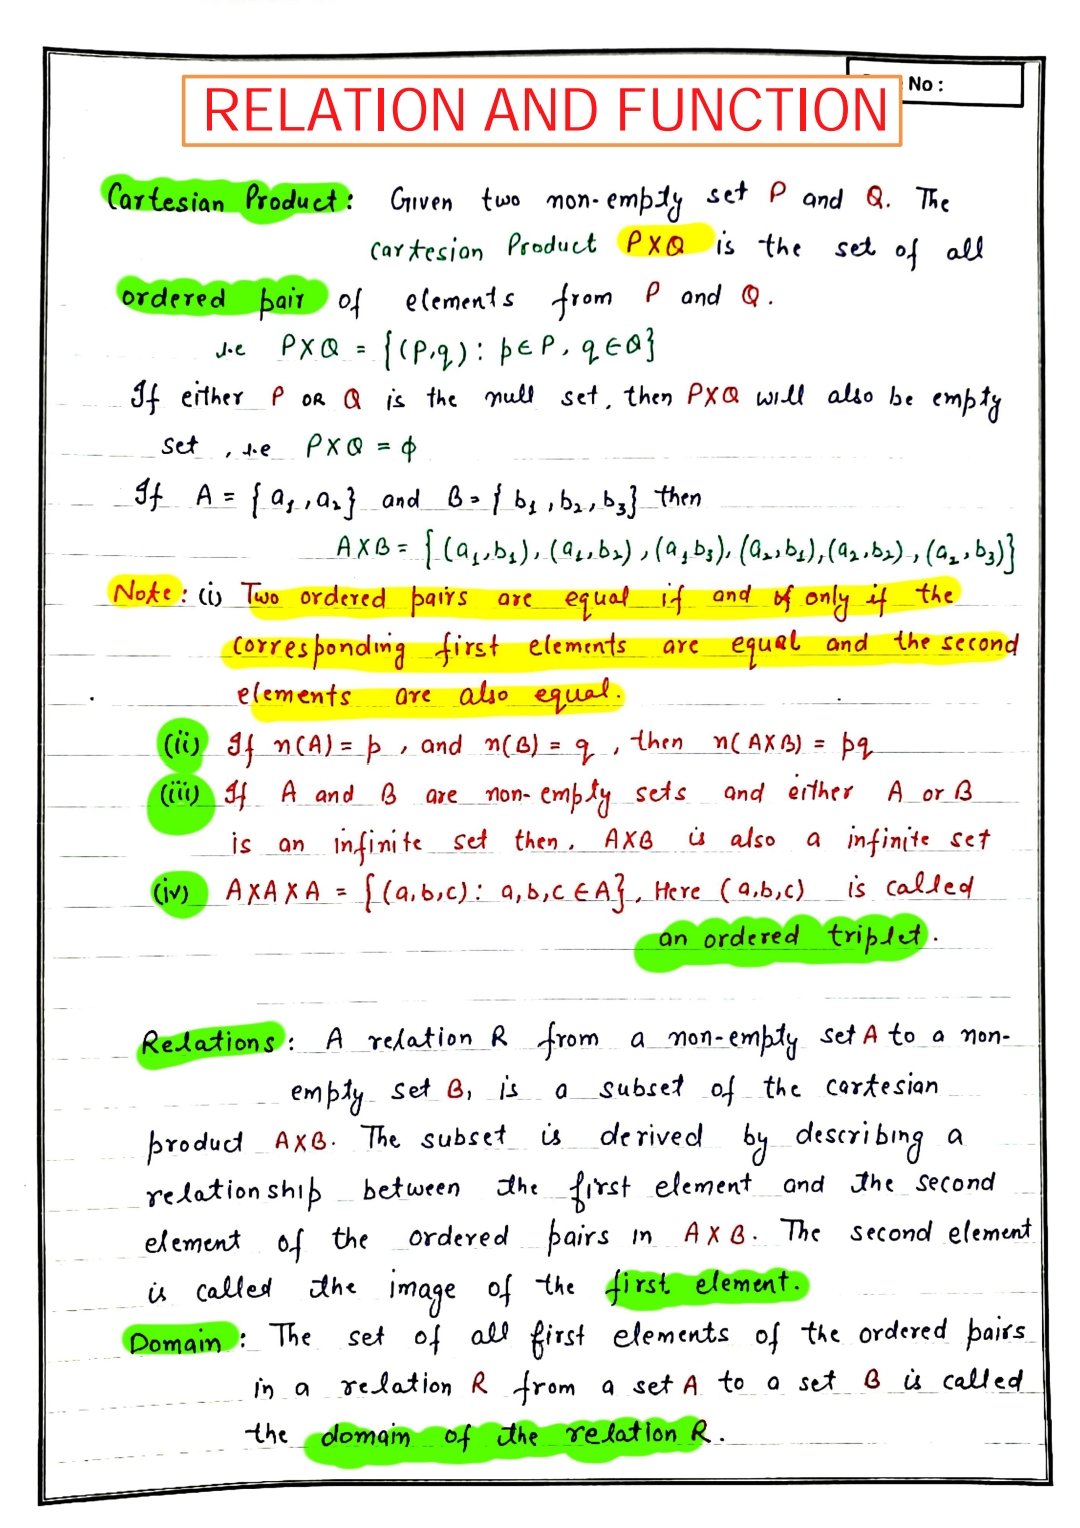 No :
RELATION AND FUNCTION
Cartesian Product : Given two non-empty set P and Q. The
cartesian Product P×Q is the set of all
ordered pair of elements from P and Q.
i.e P×Q = {(P,q) : p∈P, q∈Q}
If either P OR Q is the null set, then P×Q will also be empty
set , i.e P×Q = ϕ
If A = { a₁ , a₂} and B = { b₁ , b₂ , b₃} then
A×B = { (a₁,b₁), (a₁,b₂) , (a₁b₃), (a₂,b₁),(a₂,b₂) , (a₂,b₃)}
Note : (i) Two ordered pairs are equal if and only if the
corresponding first elements are equal and the second
elements are also equal.
(ii) If n(A) = p , and n(B) = q , then n(A×B) = pq
(iii) If A and B are non-empty sets and either A or B
is an infinite set then, A×B is also a infinite set
(iv) A×A×A = {(a,b,c) : a,b,c ∈ A}, Here (a,b,c) is called
an ordered triplet.
Relations : A relation R from a non-empty set A to a non-
empty set B, is a subset of the cartesian
product A×B. The subset is derived by describing a
relationship between the first element and the second
element of the ordered pairs in A×B. The second element
is called the image of the first element.
Domain : The set of all first elements of the ordered pairs
in a relation R from a set A to a set B is called
the domain of the relation R.